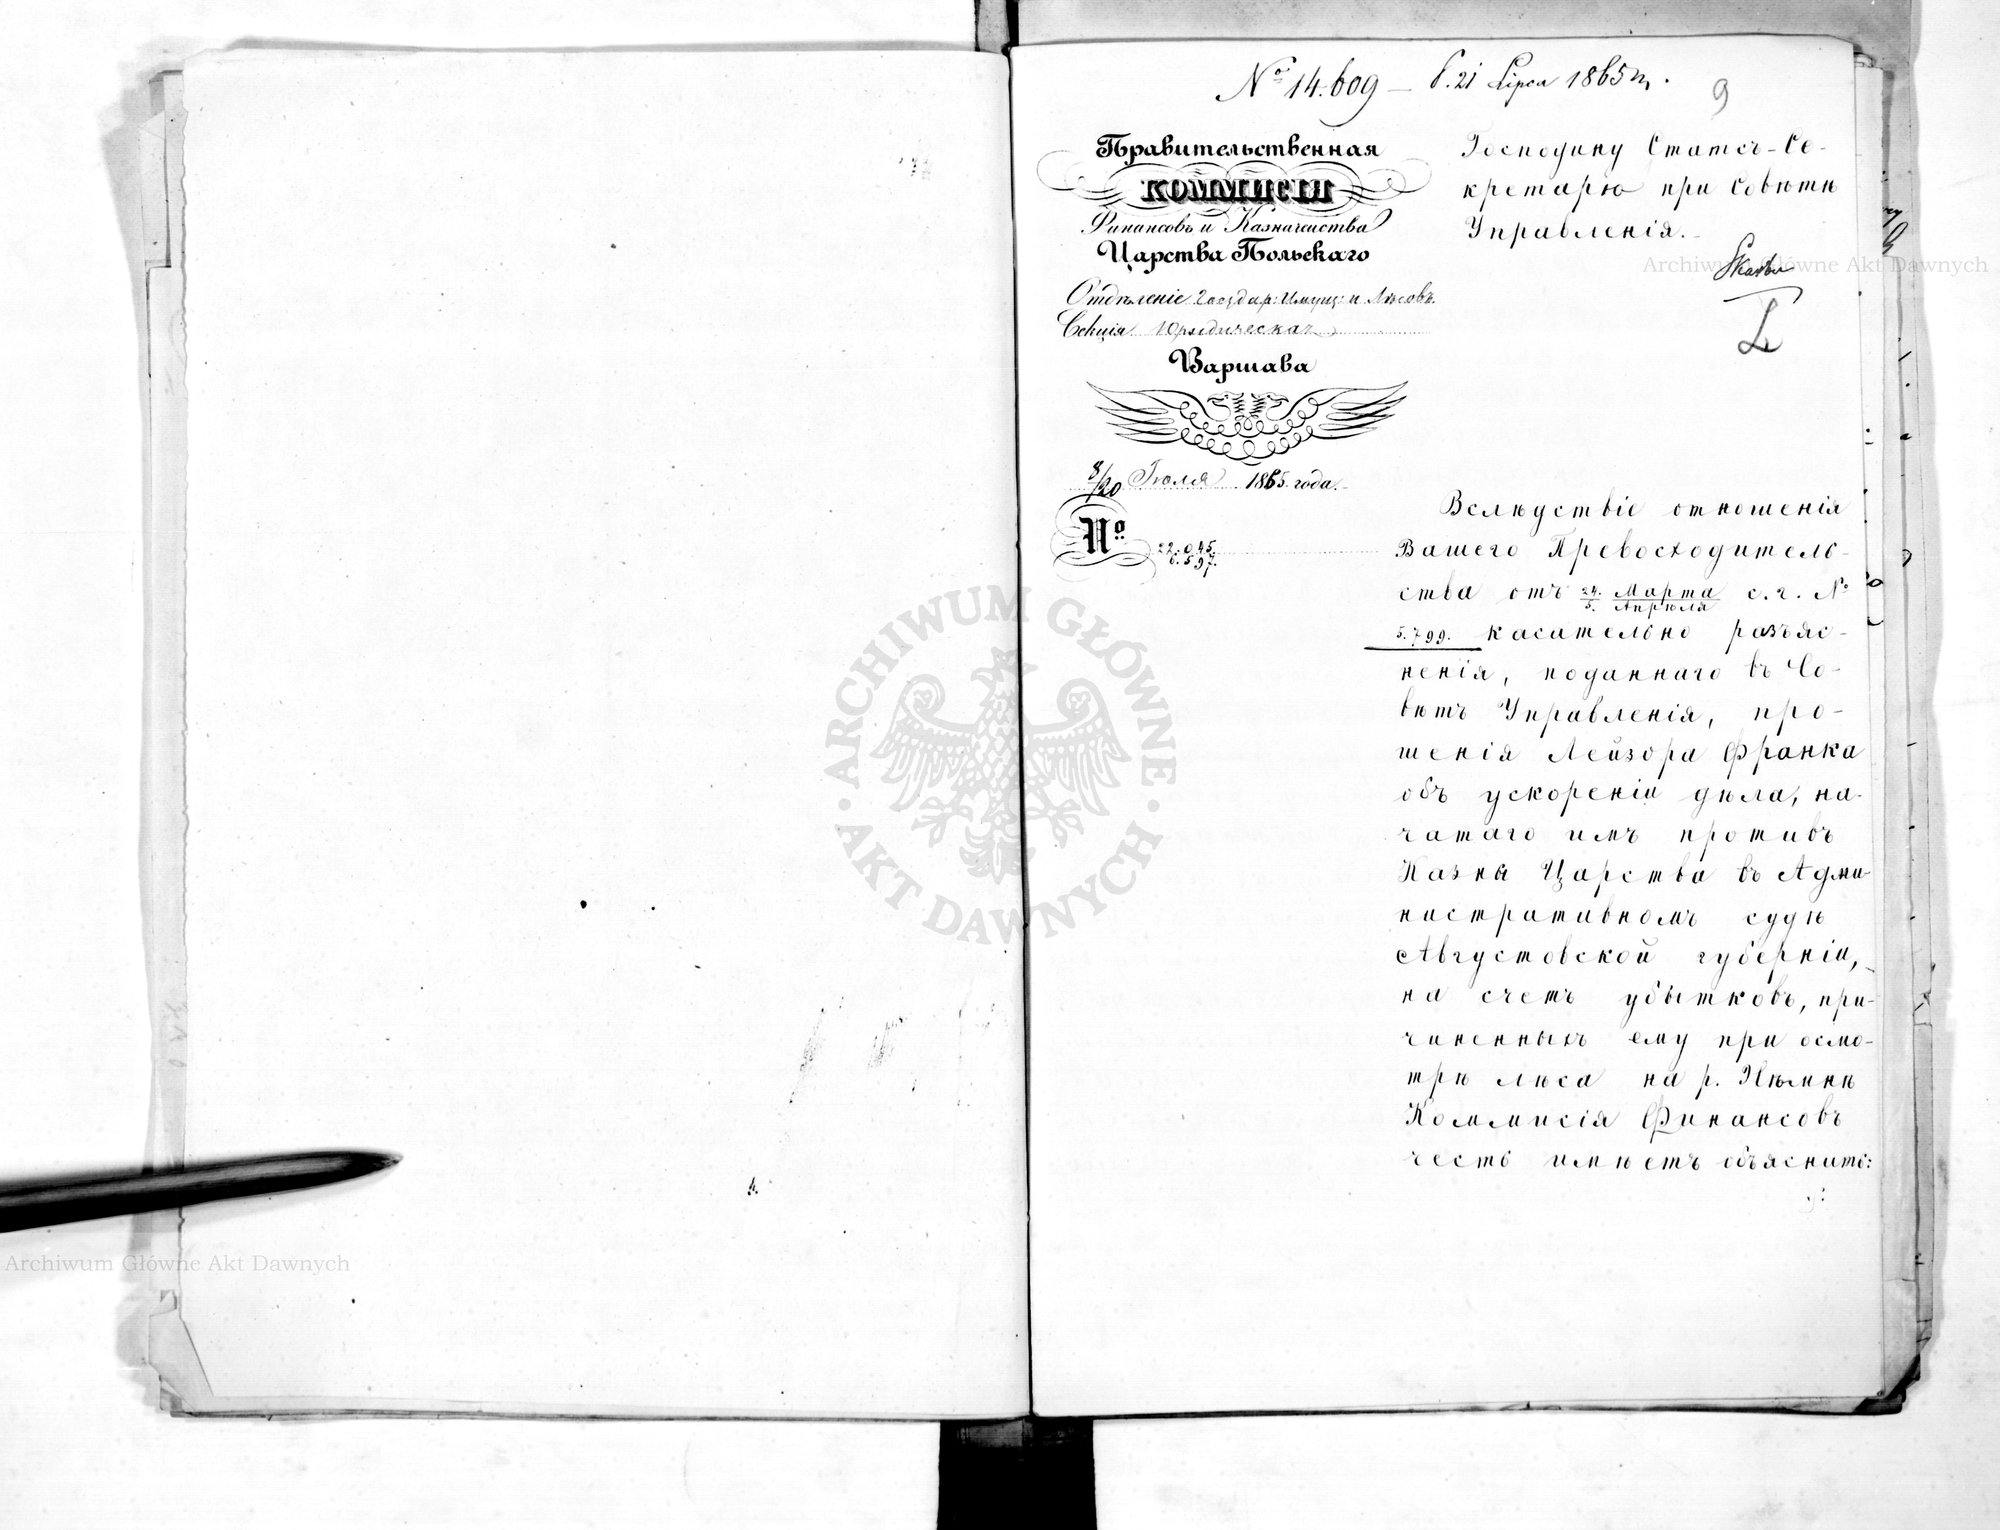 № 14.609 — d. 21 Lipca 1865 r.
9
Правительственная
КОММИСІЯ
Финансовъ и Казначейства
Царства Польскаго
Отдѣленіе Государ: Имущ: и Лѣсовъ.
Секція Юридическая
Варшава
8/20 Іюля 1865 года.
№ 22.045. / 6.597.
Господину Статсъ-Се-
кретарю при Совѣтѣ
Управленія.
Вслѣдствіе отношенія
Вашего Превосходитель-
ства отъ 24. Марта / 5. Апрѣля с. г. №
5.799. касательно разъяс-
ненія, поданнаго въ Со-
вѣтъ Управленія, про-
шенія Лейзора Франка
объ ускореніи дѣла, на-
чатаго имъ противъ
Казны Царства въ Адми-
нистративномъ судѣ
Августовской губерніи,
на счетъ убытковъ, при-
чиненныхъ ему при осмо-
трѣ лѣса на р. Нѣмнѣ
Коммисія Финансовъ
честь имѣетъ объяснить:
ARCHIWUM GŁÓWNE · AKT DAWNYCH ·
Archiwum Główne Akt Dawnych
Archiwum Główne Akt Dawnych